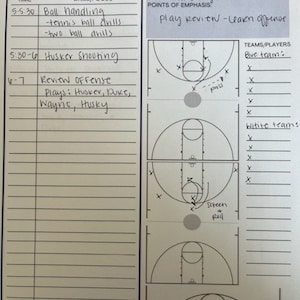 5-5:30 Ball handling
-tennis ball drills
-two ball drills
5:30-6 Husker Shooting
6-7 Review Offense
Plays: Husker, Duke,
Wayne, Husky
POINTS OF EMPHASIS
Play Review - Learn Offense
TEAMS/PLAYERS
Blue team:
x
x
x
x
White team:
x
x
x
x
pass
screen
+
Roll